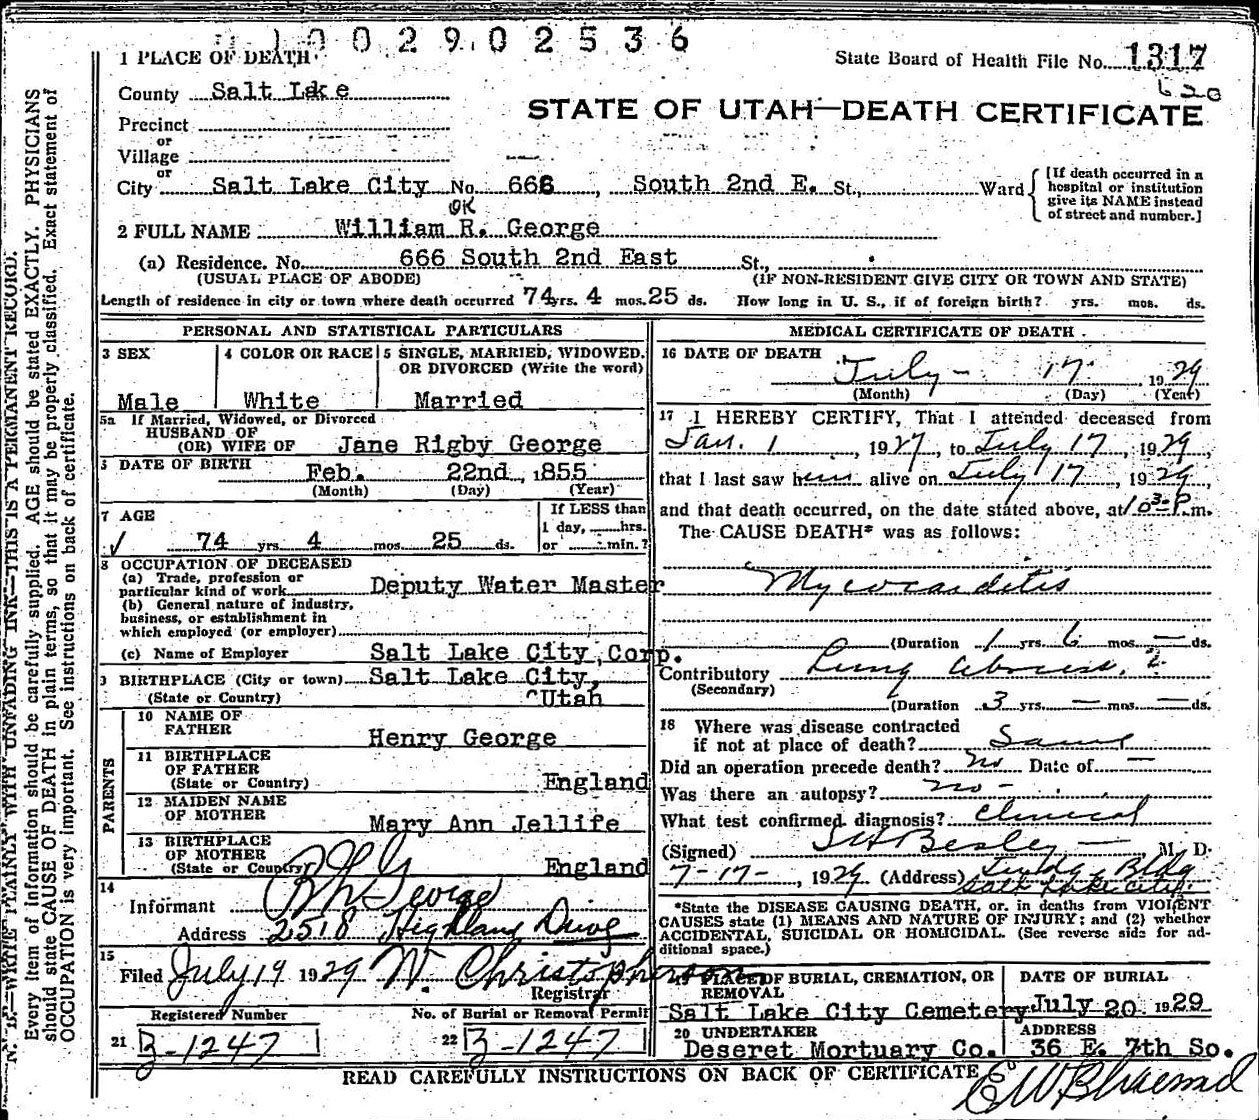 1002902536
1 PLACE OF DEATH
State Board of Health File No. 1317
620
County Salt Lake
STATE OF UTAH—DEATH CERTIFICATE
Precinct
or
Village
or
City Salt Lake City No. 666, South 2nd E. St., Ward
[If death occurred in a hospital or institution give its NAME instead of street and number.]
OK
2 FULL NAME William R. George
(a) Residence. No. 666 South 2nd East St.,
(USUAL PLACE OF ABODE) (IF NON-RESIDENT GIVE CITY OR TOWN AND STATE)
Length of residence in city or town where death occurred 74 yrs. 4 mos. 25 ds. How long in U. S., if of foreign birth? yrs. mos. ds.
PERSONAL AND STATISTICAL PARTICULARS
3 SEX 4 COLOR OR RACE 5 SINGLE, MARRIED, WIDOWED,
OR DIVORCED (Write the word)
Male White Married
5a If Married, Widowed, or Divorced
HUSBAND OF
(OR) WIFE OF Jane Rigby George
DATE OF BIRTH
Feb. 22nd, 1855
(Month) (Day) (Year)
7 AGE
If LESS than
1 day, hrs.
or min.?
74 yrs. 4 mos. 25 ds.
8 OCCUPATION OF DECEASED
(a) Trade, profession or
particular kind of work Deputy Water Master
(b) General nature of industry,
business, or establishment in
which employed (or employer)
(c) Name of Employer Salt Lake City, Corp.
9 BIRTHPLACE (City or town) Salt Lake City,
(State or Country) Utah
PARENTS
10 NAME OF
FATHER Henry George
11 BIRTHPLACE
OF FATHER
(State or Country) England
12 MAIDEN NAME
OF MOTHER Mary Ann Jellife
13 BIRTHPLACE
OF MOTHER
(State or Country) England
14
Informant George
Address 2518 Highland Drive
15
Filed July 19 1929 W. Christopherson
Registrar
Registered Number No. of Burial or Removal Permit
21 3-1247 22 3-1247
MEDICAL CERTIFICATE OF DEATH
16 DATE OF DEATH
July - 17 1929
(Month) (Day) (Year)
17 I HEREBY CERTIFY, That I attended deceased from
Jan. 1, 1927, to July 17, 1929,
that I last saw him alive on July 17, 1929,
and that death occurred, on the date stated above, at 10 30 P. m.
The CAUSE DEATH* was as follows:
Myocarditis
(Duration 1 yrs. 6 mos. — ds.
Contributory Lung abscess. ?
(Secondary)
(Duration 3 yrs. — mos. — ds.
18 Where was disease contracted
if not at place of death? Same
Did an operation precede death? no Date of —
Was there an autopsy? no -
What test confirmed diagnosis? Clinical
(Signed) Besley — M. D.
7-17-, 1929 (Address) Bldg
Salt Lake City
*State the DISEASE CAUSING DEATH, or, in deaths from VIOLENT
CAUSES state (1) MEANS AND NATURE OF INJURY; and (2) whether
ACCIDENTAL, SUICIDAL OR HOMICIDAL. (See reverse side for ad-
ditional space.)
19 PLACE OF BURIAL, CREMATION, OR
REMOVAL
DATE OF BURIAL
Salt Lake City Cemetery July 20 1929
20 UNDERTAKER ADDRESS
Deseret Mortuary Co. 36 E. 7th So.
READ CAREFULLY INSTRUCTIONS ON BACK OF CERTIFICATE
N. B.—WRITE PLAINLY WITH UNFADING INK—THIS IS A PERMANENT RECORD.
Every item of information should be carefully supplied. AGE should be stated EXACTLY. PHYSICIANS
should state CAUSE OF DEATH in plain terms, so that it may be properly classified. Exact statement of
OCCUPATION is very important. See instructions on back of certificate.